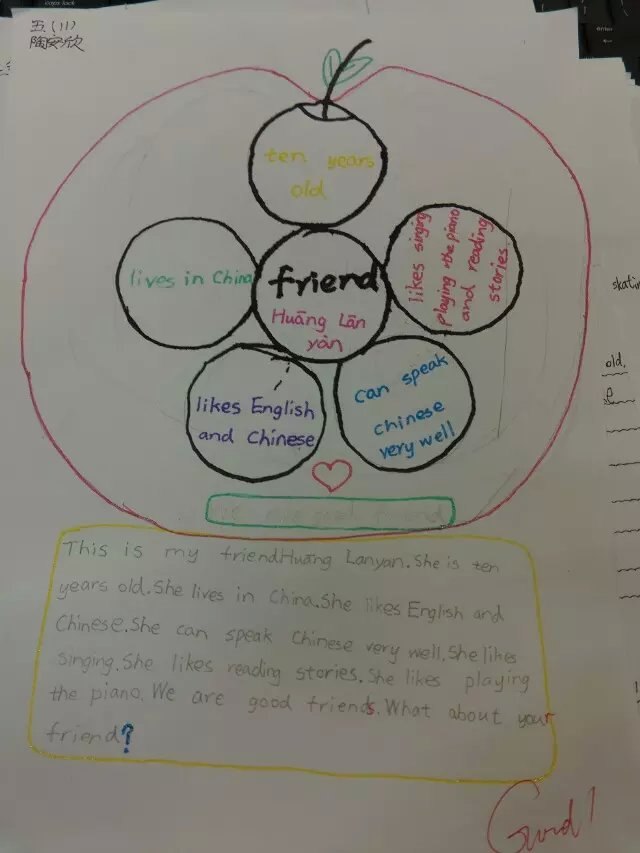 五.(11)
陶安欣
ten years
old
lives in China
friend
Huāng Lān
yàn
likes singing
playing the piano
and reading
stories
likes English
and Chinese
can speak
chinese
very well
friend
This is my friendHuāng Lanyan.She is ten
years old.She lives in China.She likes English and
Chinese.She can speak Chinese very well.She likes
singing.She likes reading stories.She likes playing
the piano.We are good friends.What about your
friend?
Good!
skating
old.